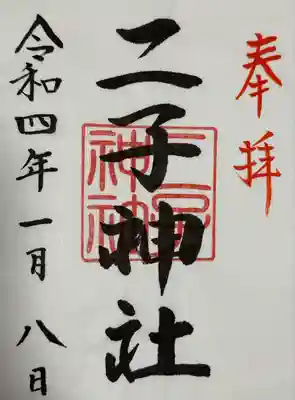 奉拝
二子神社
二子神社
令和四年一月八日